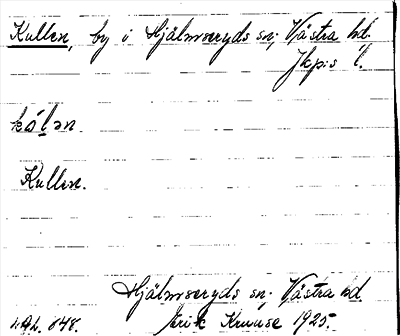 Kullen, by i Hjälmseryds sn; Västra hd.
Jkpis l.
Kullen.
Hjälmseryds sn; Västra hd
Erik Kruuse 1925.